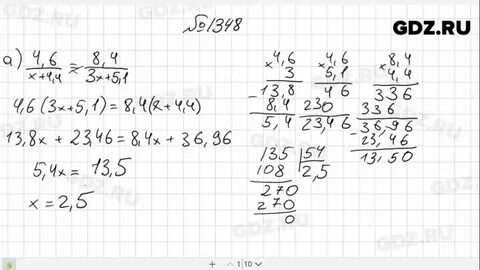 №1348
GDZ.RU
а) 4,6/(x+4,4) = 8,4/(3x+5,1)
4,6(3x+5,1)=8,4(x+4,4)
13,8x + 23,46 = 8,4x + 36,96
5,4x = 13,5
x = 2,5
× 4,6
3
13,8
- 8,4
5,4
× 4,6
5,1
46
230
23,46
× 8,4
4,4
336
336
- 36,96
23,46
13,50
135 | 54
108 | 2,5
270
270
0
1 | 10